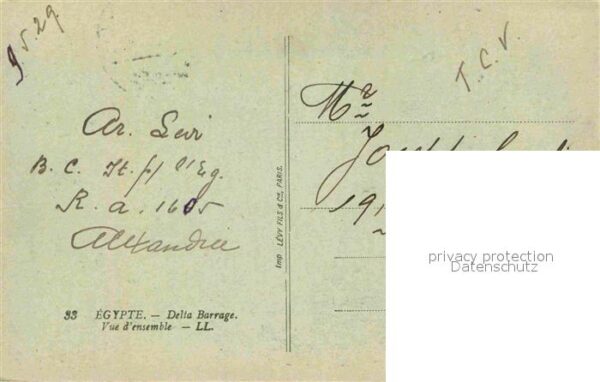 9.5.29
T.C.V.
Ar. Levi
B. C. It. p/ l'Eg.
R. a. 1605
Alexandrie
Mr
191
33 ÉGYPTE. — Delta Barrage.
Vue d'ensemble — LL.
Imp. LÉVY FILS & Cie, PARIS.
privacy protection
Datenschutz